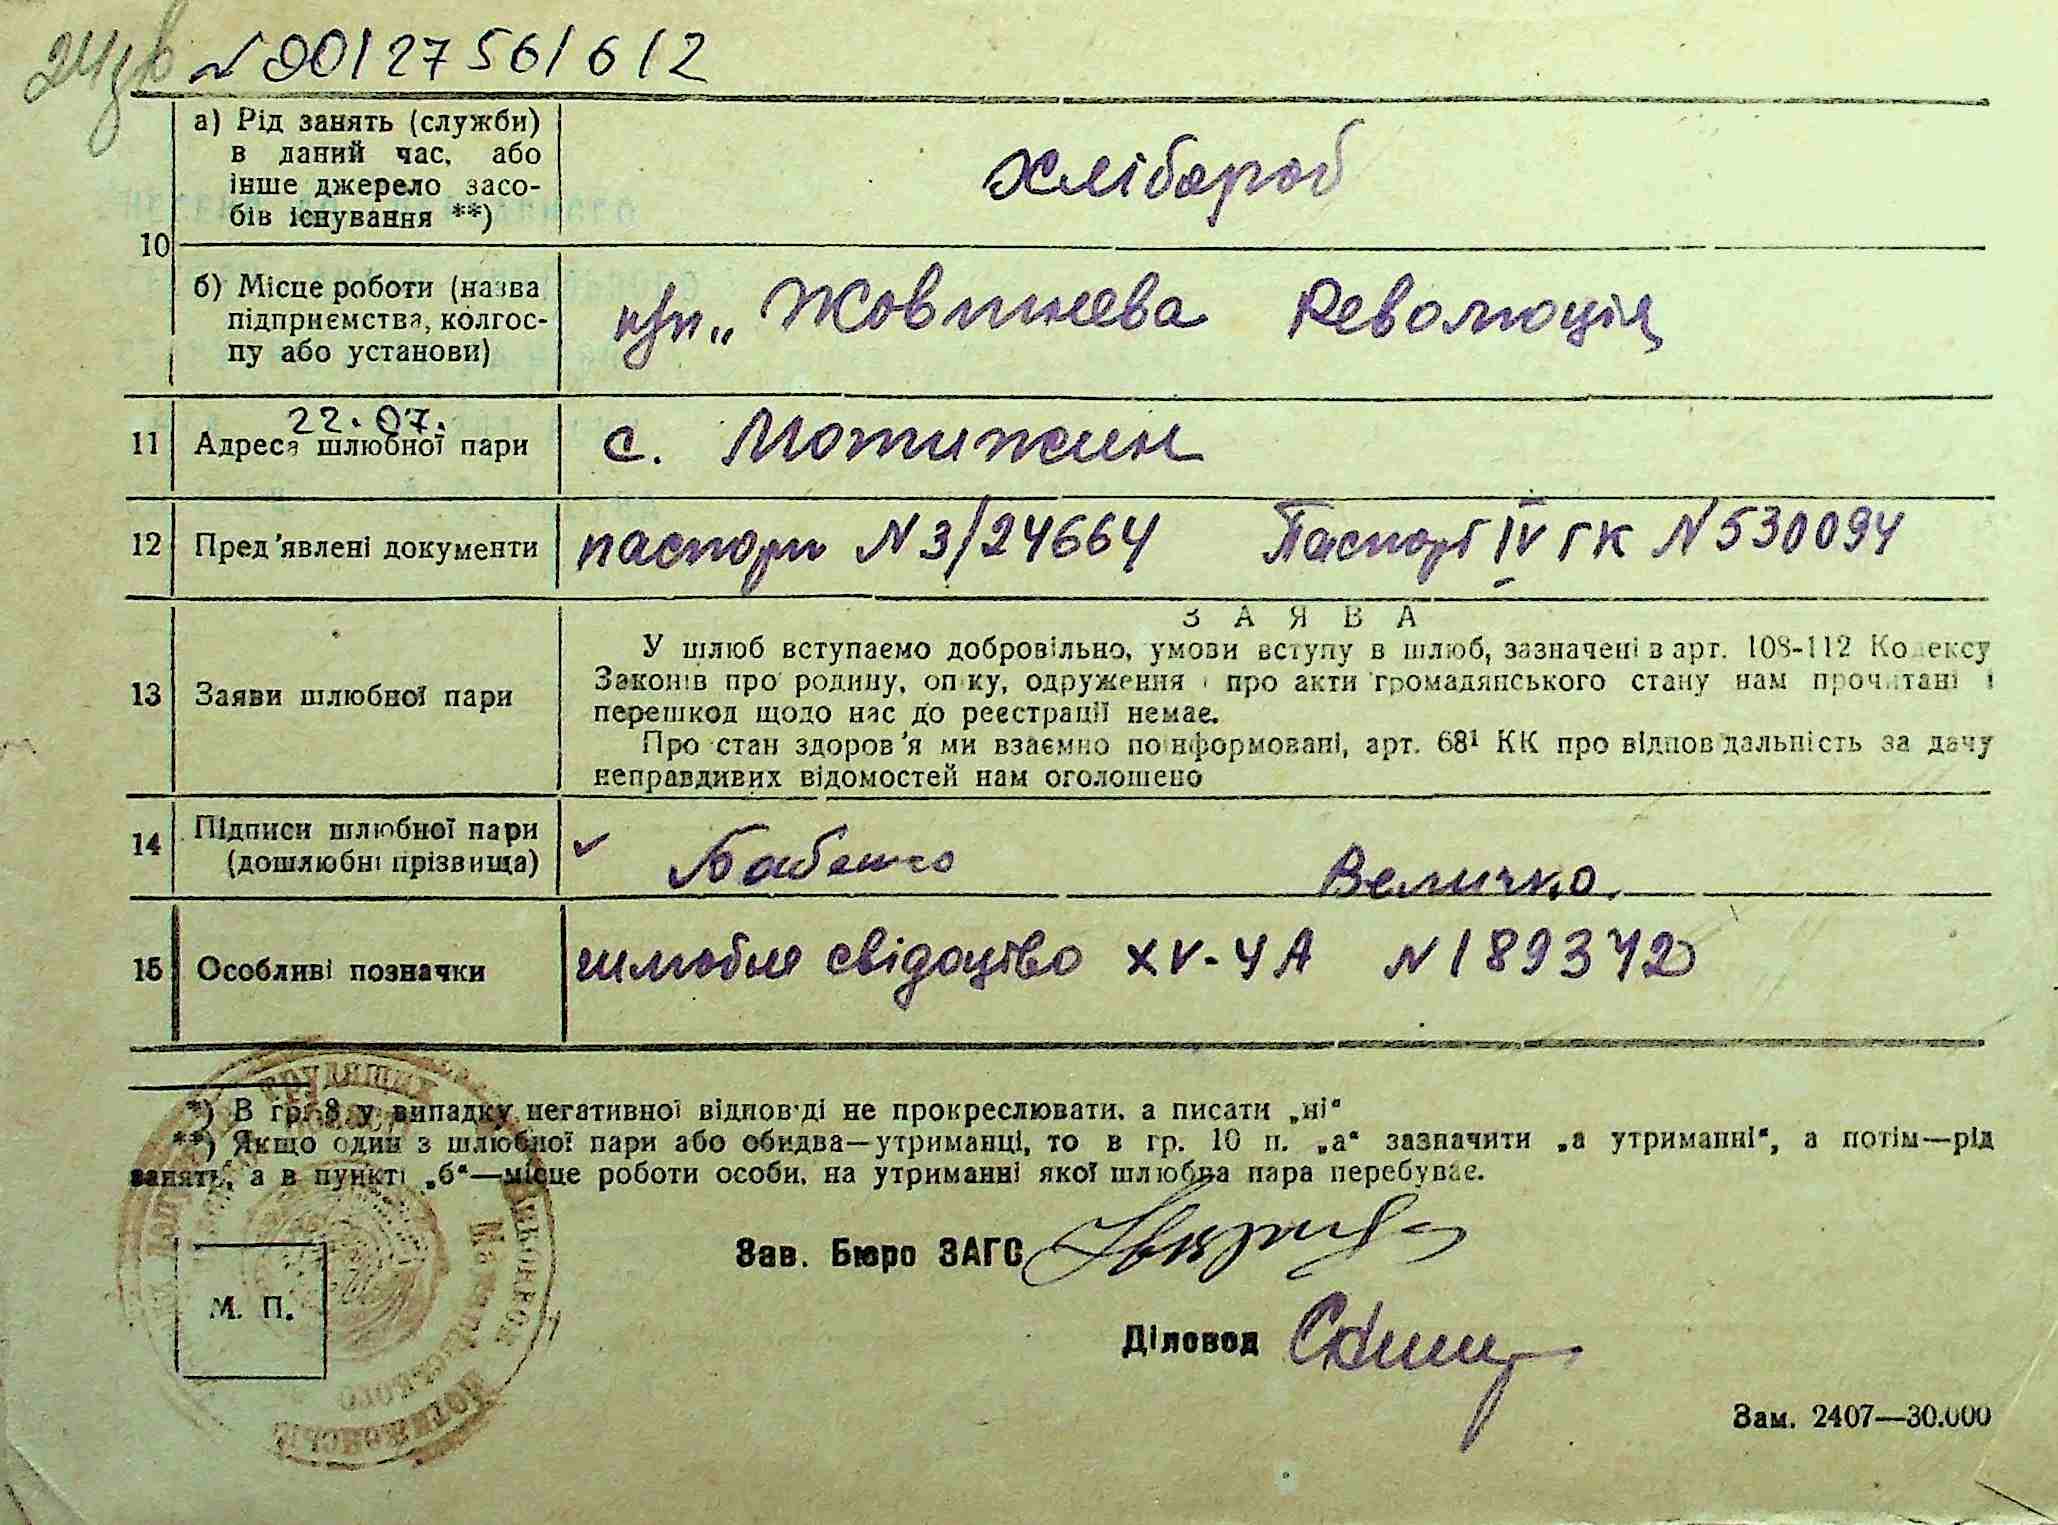 № 90127561612
а) Рід занять (служби)
в даний час, або
інше джерело засо-
бів існування **)
хлібороб
10
б) Місце роботи (назва
підприємства, колгос-
пу або установи)
„Жовтнева Революція
22.07.
11 Адреса шлюбної пари с. Мотижин
12 Пред'явлені документи паспорт №3/24664 Паспорт IV ГК №530094
ЗАЯВА
13 Заяви шлюбної пари
У шлюб вступаємо добровільно, умови вступу в шлюб, зазначені в арт. 108-112 Кодексу
Законів про родину, опіку, одруження і про акти громадянського стану нам прочитані і
перешкод щодо нас до реєстрації немає.
Про стан здоров'я ми взаємно поінформовані, арт. 68¹ КК про відповідальність за дачу
неправдивих відомостей нам оголошено
14 Підписи шлюбної пари
(дошлюбні прізвища)
Бабенко Величко.
15 Особливі позначки шлюбне свідоцтво XV-ЧА №189372
*) В гр. 8 у випадку негативної відповіді не прокреслювати, а писати „ні“
**) Якщо один з шлюбної пари або обидва—утриманці, то в гр. 10 п. „а“ зазначити „а утриманні“, а потім—рід
занять, а в пункті „б“—місце роботи особи, на утриманні якої шлюбна пара перебуває.
Зав. Бюро ЗАГС
Діловод
М. П.
Зам. 2407—30.000